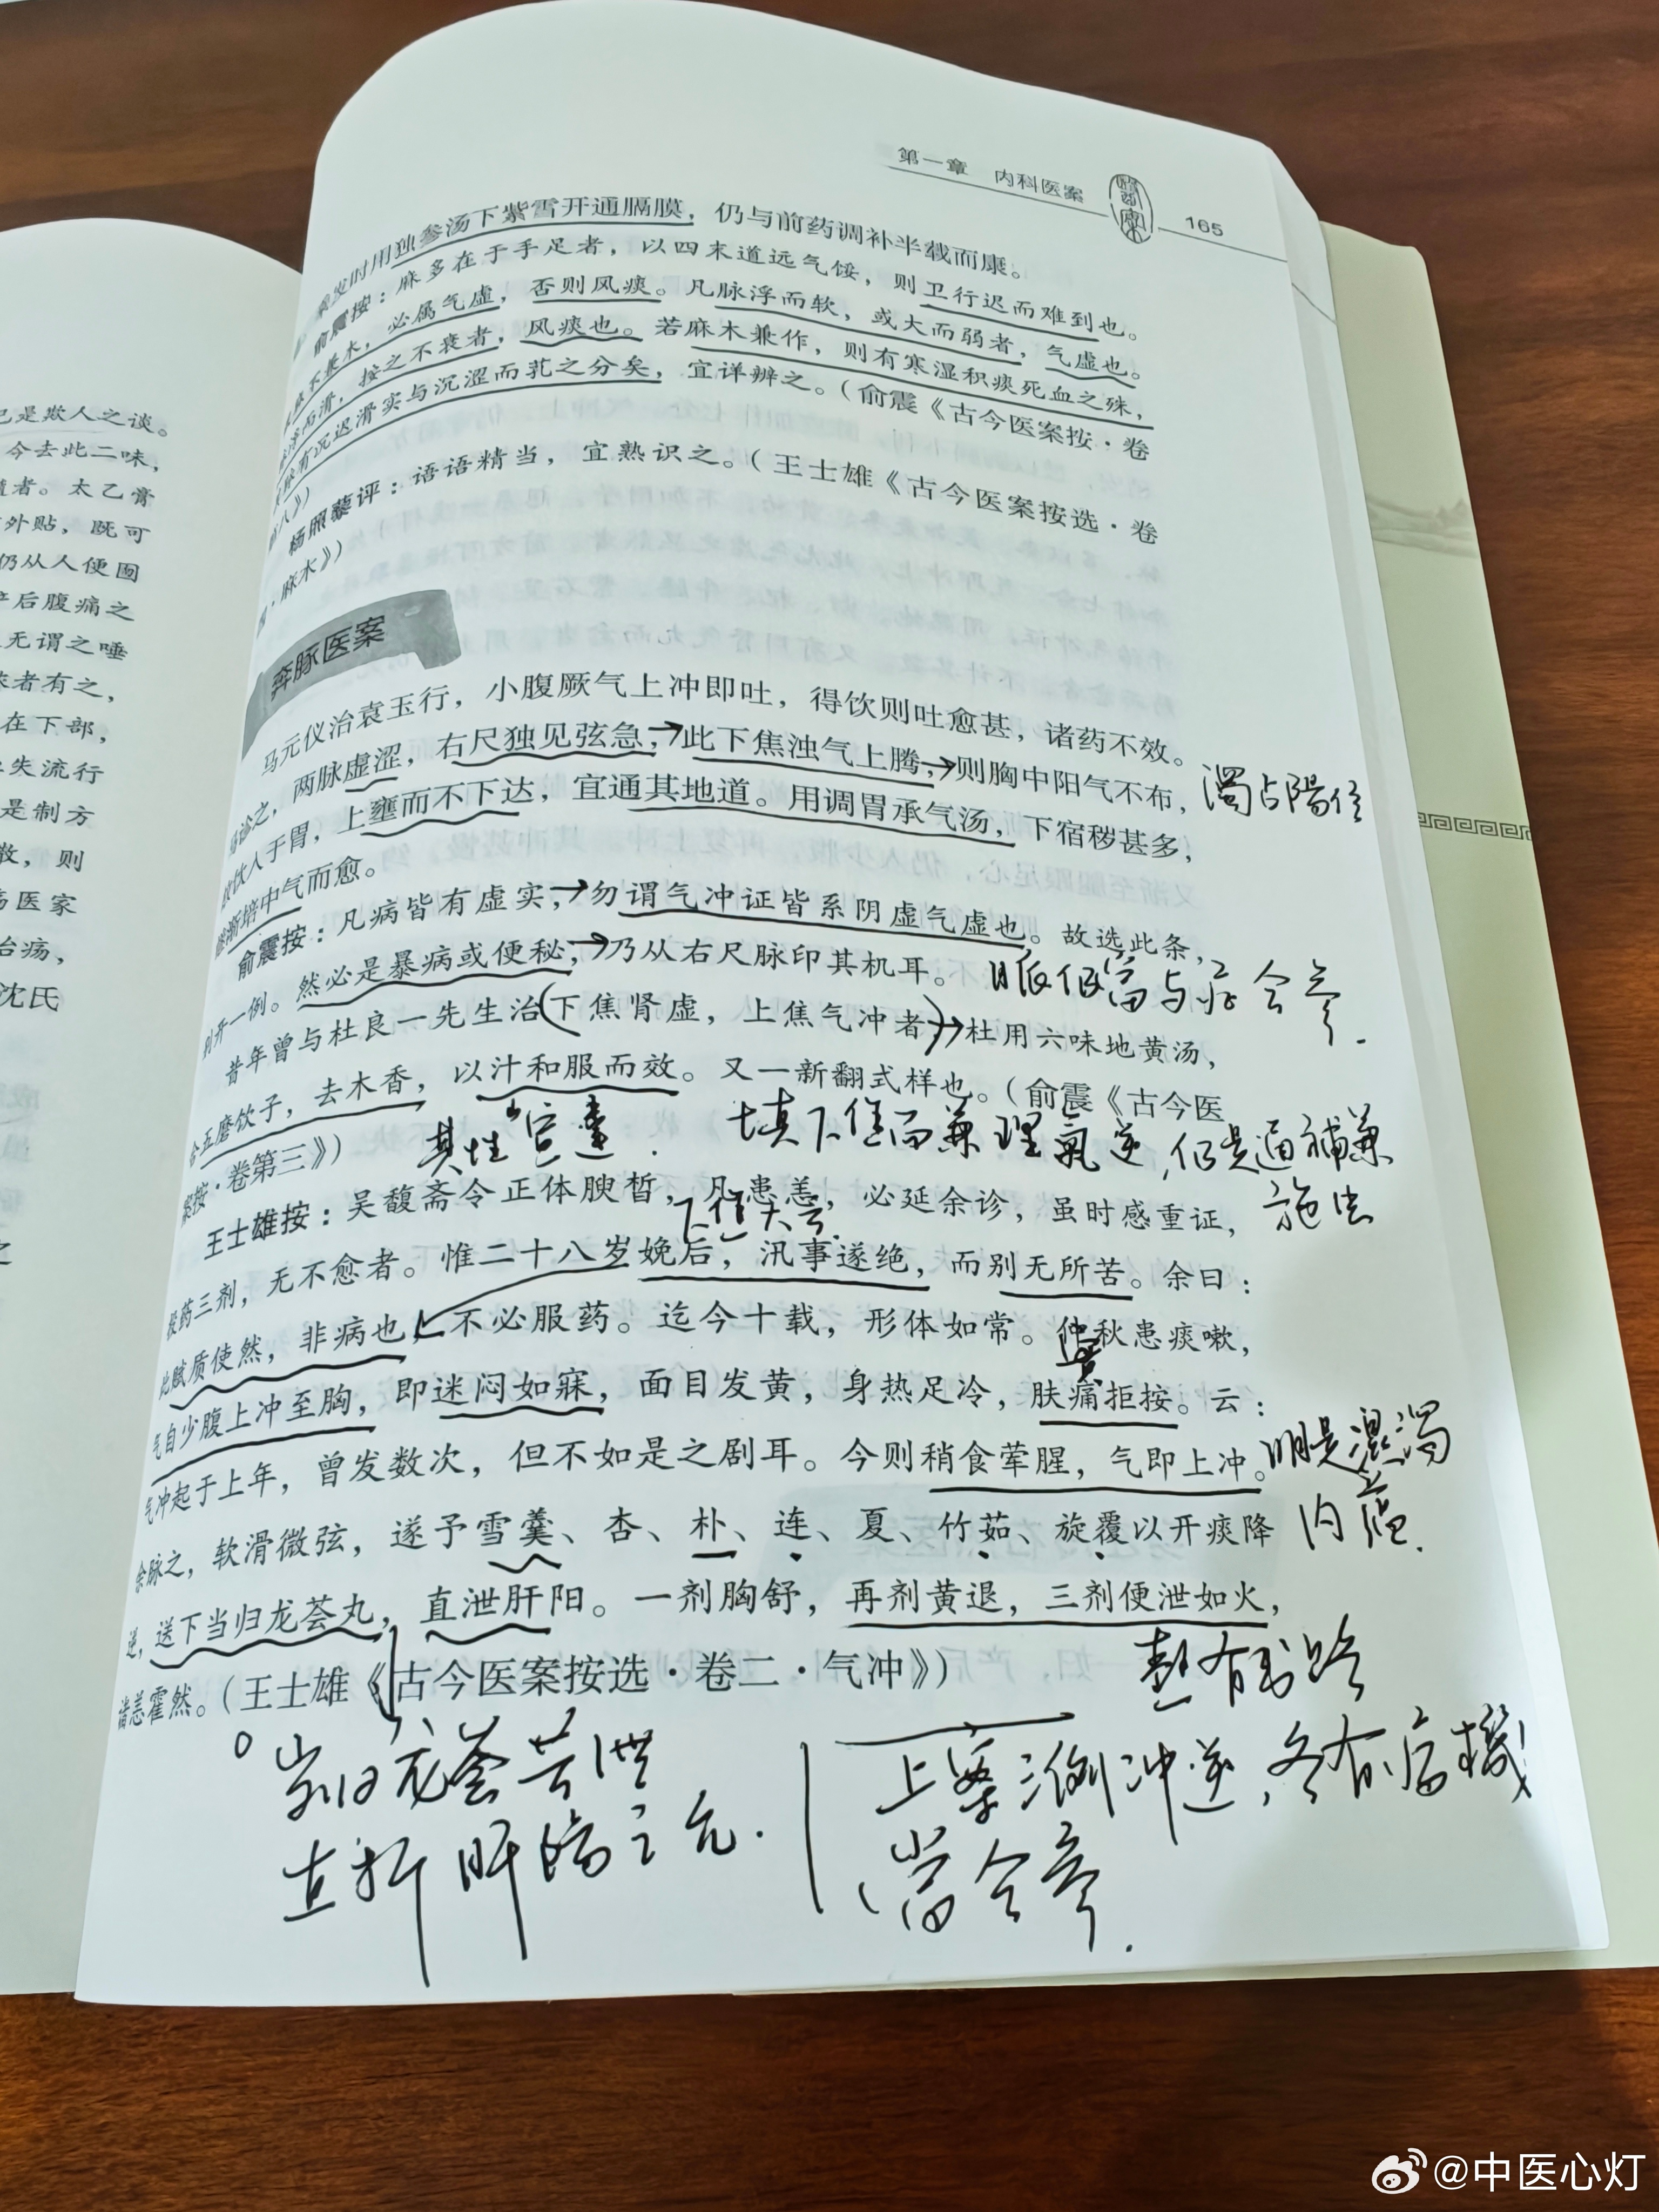 第一章 内科医案
165
发时用独参汤下紫雪开通膈膜，仍与前药调补半载而康。
俞震按：麻多在于手足者，以四末道远气馁，则卫行迟而难到也。
不兼木，必属气虚，否则风痰。凡脉浮而软，或大而弱者，气虚也。
而滑，按之不衰者，风痰也。若麻木兼作，则有寒湿积痰死血之殊，
有沉迟滑实与沉涩而芤之分矣，宜详辨之。（俞震《古今医案按·卷
八》）
杨照藜评：语语精当，宜熟识之。（王士雄《古今医案按选·卷
·麻木》）
奔豚医案
马元仪治袁玉行，小腹厥气上冲即吐，得饮则吐愈甚，诸药不效。
马诊之，两脉虚涩，右尺独见弦急，此下焦浊气上腾，则胸中阳气不布，
饮入于胃，上壅而不下达，宜通其地道。用调胃承气汤，下宿秽甚多，
渐培中气而愈。
浊占陽位
俞震按：凡病皆有虚实，勿谓气冲证皆系阴虚气虚也。故选此条，
别开一例。然必是暴病或便秘，乃从右尺脉印其机耳。
昔年曾与杜良一先生治下焦肾虚，上焦气冲者，杜用六味地黄汤，
合五磨饮子，去木香，以汁和服而效。又一新翻式样也。（俞震《古今医
案按·卷第三》）
填下焦而兼理氣逆，仍是通補兼
施法
王士雄按：吴馥斋令正体腴皙，凡患恙，必延余诊，虽时感重证，
投药三剂，无不愈者。惟二十八岁娩后，汛事遂绝，而别无所苦。余曰：
此赋质使然，非病也，不必服药。迄今十载，形体如常。仲秋患痰嗽，
气自少腹上冲至胸，即迷闷如寐，面目发黄，身热足冷，肤痛拒按。云：
气冲起于上年，曾发数次，但不如是之剧耳。今则稍食荤腥，气即上冲。
余脉之，软滑微弦，遂予雪羹、杏、朴、连、夏、竹茹、旋覆以开痰降
逆，送下当归龙荟丸，直泄肝阳。一剂胸舒，再剂黄退，三剂便泄如火，
诸恙霍然。（王士雄《古今医案按选·卷二·气冲》）
实
明是濕濁
内蕴
當归龙荟苦泄
直折肝陽之亢．
上案三例冲逆，各有病機
當合参．
已是欺人之谈。
今去此二味，
者。太乙膏
外贴，既可
仍从人便囫
产后腹痛之
无谓之唾
者有之，
在下部，
失流行
是制方
散，则
医家
治疡，
沈氏
@中医心灯